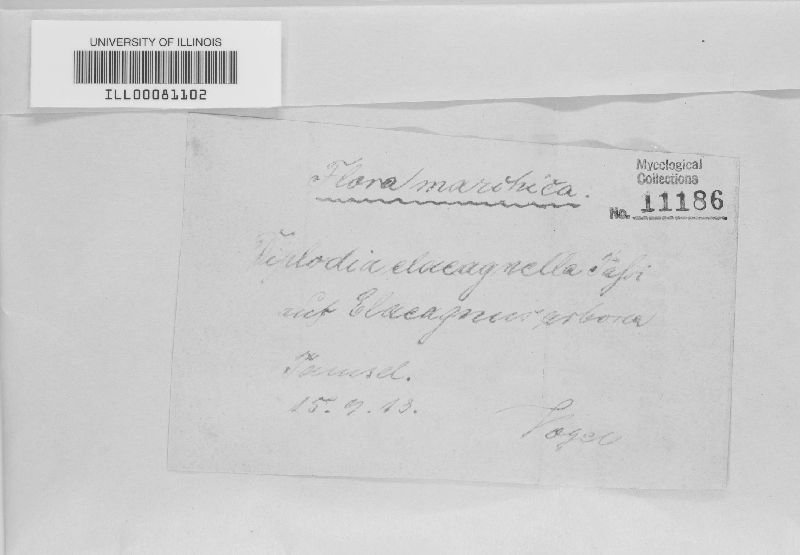 UNIVERSITY OF ILLINOIS
ILL00081102
Mycological
Collections
No. 11186
Flora marchica.
Diplodia elaeagnella Tassi
auf Elaeagnus
Tamsel.
15. 9. 13.
Vogel